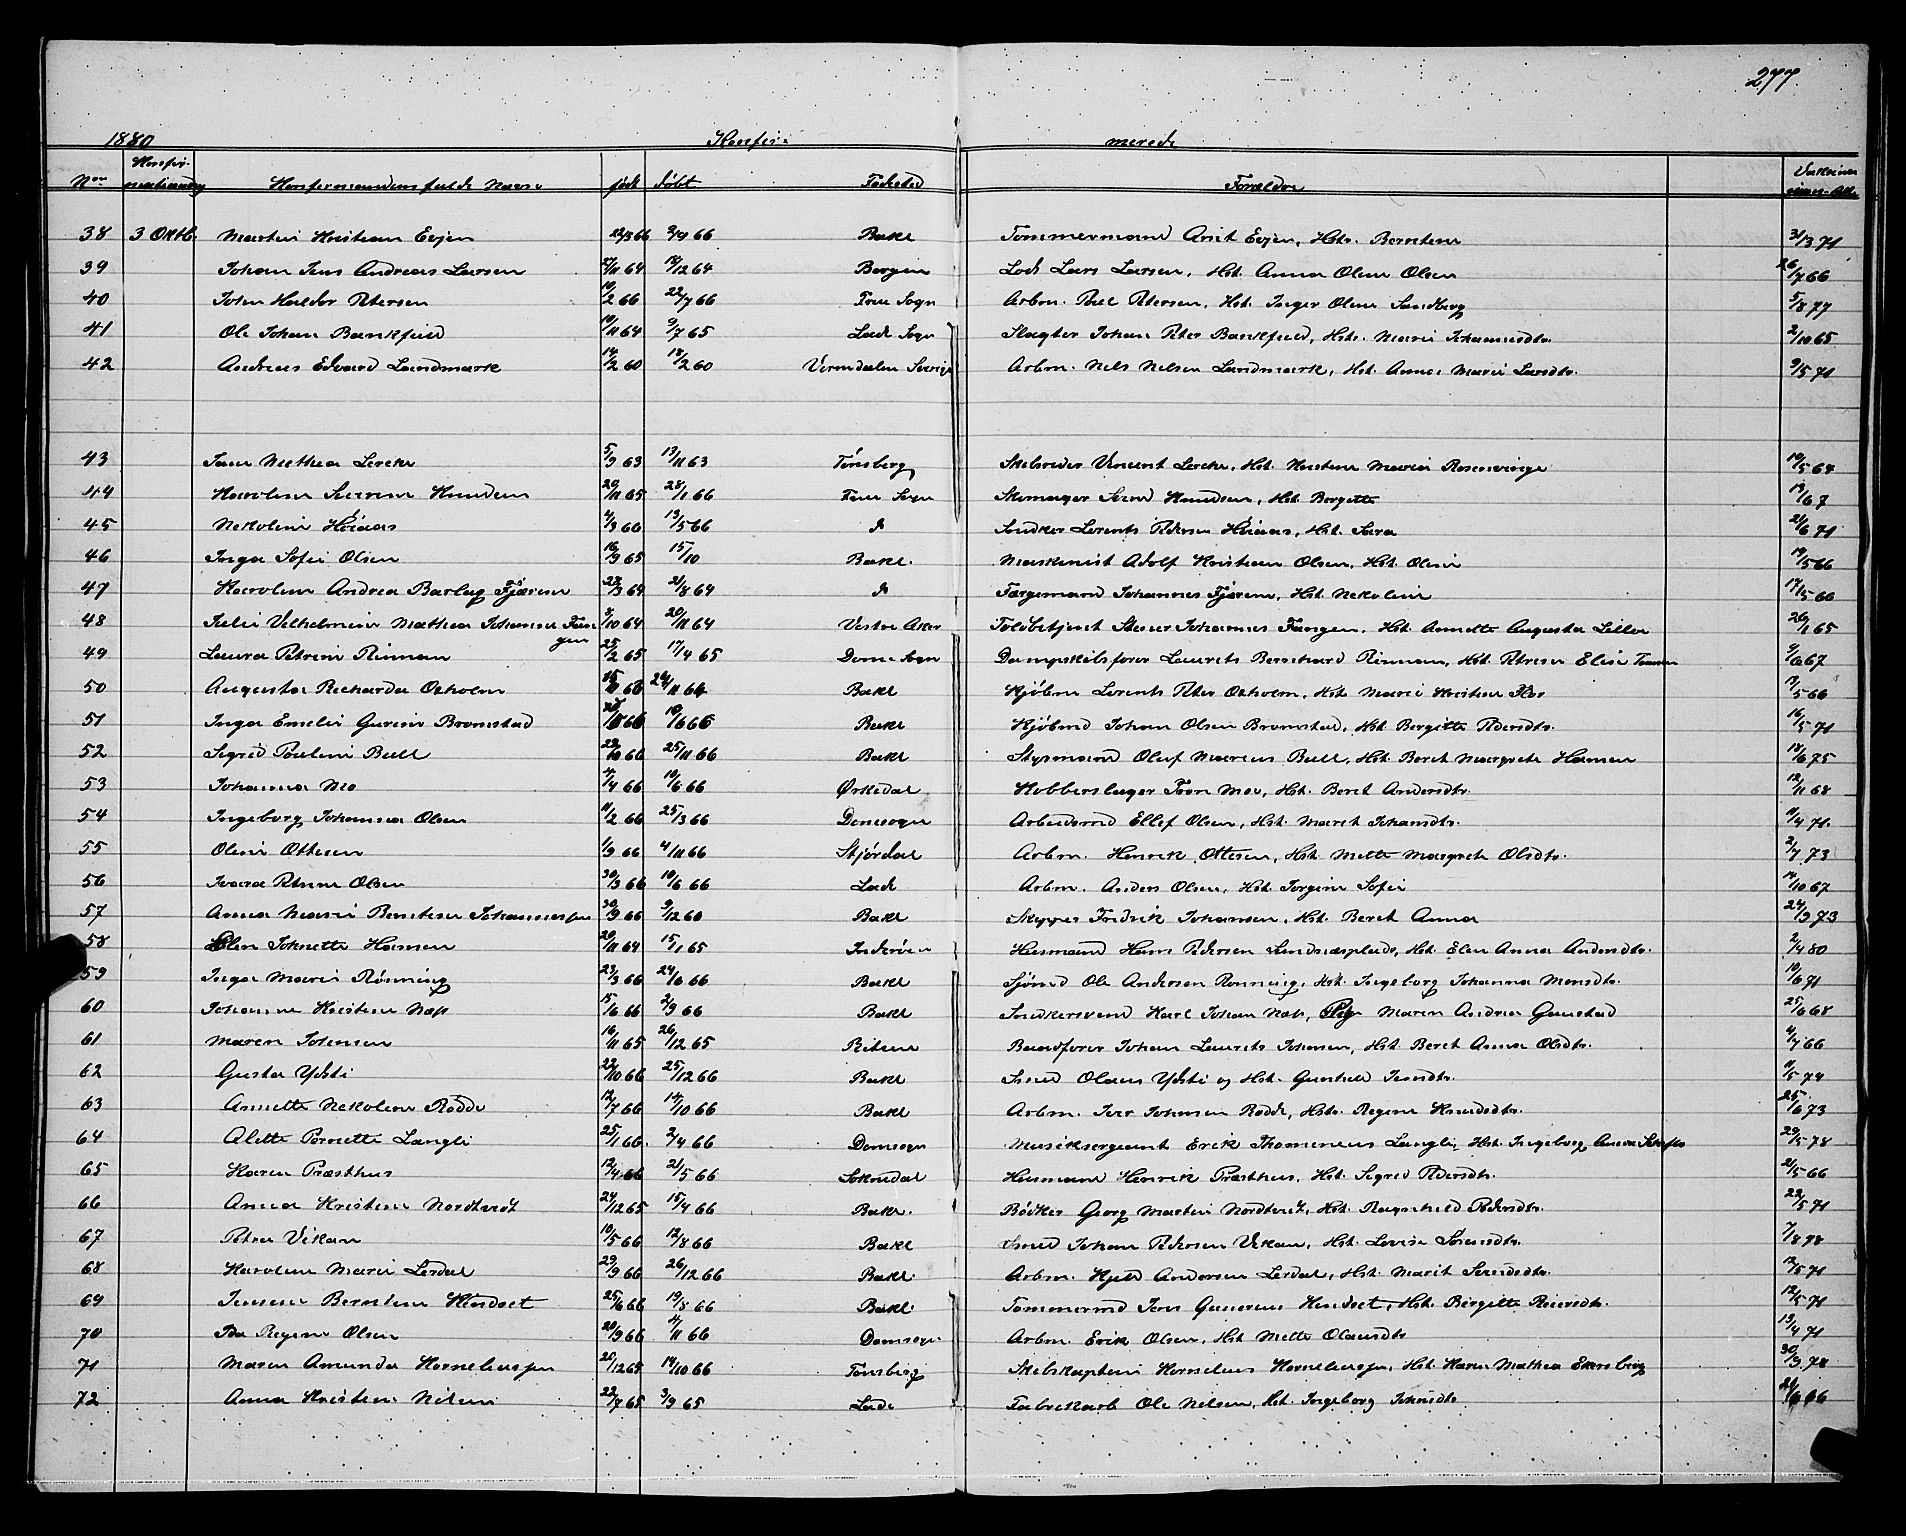 277.
1880 Konfir= merede
Nor Konfir- mationsdag Konfirmandens fulde Navn født døbt Fødested Forældre Vaccina- tions-Att.
38 3 Oktb. Martin Kristian Evjen 22/3 66 2/9 66 Bakl Tømmermand Arnt Evjen, Hstr. Berntine 31/3 71
39 Johan Jens Andreas Larsen 27/11 64 18/12 64 Bergen Lods Lars Larsen, Hst. Anna Oline Olsen 26/7 66
40 John Haldor Petersen 10/2 66 22/7 66 Frue Sogn Arbm. Paul Petersen, Hst. Inger Oline Sandberg 5/8 77
41 Ole Johan Bankfeid 10/11 64 9/7 65 Lade Sogn Slagter Johan Peter Bankfeid, Hstr. Marie Johannesdtr. 2/10 65
42 Andreas Edvard Landmark 14/2 60 18/2 60 Vermdalen Sverige Arbm. Nils Nilsen Landmark, Hst. Anna Marie Larsdtr. 9/5 71
43 Jane Mathea Lerche 5/9 63 13/11 63 Tønsberg Skibsreder Vincent Lerche, Hst. Kristine Maria Rosenvinge 10/5 64
44 Karoline Severine Knudsen 20/11 65 28/1 66 Frue Sogn Skomager Knudsen, Hst. Bergitte 13/6 7
45 Nikoline Høiaas 4/3 66 13/5 66 do Snedker Lorents Pedersen Høiaas, Hst. Sara 21/6 71
46 Inga Sofie Olsen 16/9 65 15/10 Bakl. Maskinist Adolf Kristian Olsen, Hst. Oline 19/5 66
47 Karoline Andrea Barlug Fjæren 27/3 64 21/8 64 do Færgemand Johannes Fjæren, Hst. Nikoline 17/5 66
48 Julie Vilhelmine Mathea Johanna Fangen 3/10 64 20/11 64 Vestre Aker Toldbetjent Stener Johannes Fangen, Hst. Annette Augusta Liller 26/1 65
49 Laura Petrine Rinnan 25/2 65 17/4 65 Dome Sogn Dampskibsfører Laurits Bernhard Rinnan, Hst. Petrine Elise 9/6 67
50 Augusta Richarda Oxholm 66 26/11 64 Bakl Kjøbm Lorents Peter Oxholm, Hst. Marie Kristine Flor 13/5 66
51 Inga Emelie Gurine Bromstad 66 10/6 66 Bakl Kjøbmd Johan Olsen Bromstad, Hst Bergitte Pedersdtr. 16/5 71
52 Sigrid Pauline Bull 23/10 66 25/11 66 Bakl Styrmand Oluf Marius Bull, Hst. Beret Margrete Hansen 18/6 75
53 Johanna Mo 4/4 66 10/6 66 Ørkedal Kobberslager Tore Moe, Hst. Beret Andersdtr. 12/11 68
54 Ingeborg Johanna Olsen 11/2 66 25/3 66 Domsogn Arbeidsmd Ellef Olsen, Hst. Maret Johansdtr. 11/4 71.
55 Oline Ottesen 1/9 66 4/11 66 Stjørdal Arbm. Henrik Ottesen, Hst Mette Margrete Olsdtr. 2/7 73
56 Ivara Petrine Olsen 30/3 66 10/6 66 Lade Arbm. Anders Olsen, Hst Jorgine Sofie 14/10 67
57 Anna Marie Berntine Johannessen 30/9 66 9/12 60 Bakl Skipper Fredrik Johansen, Hst. Beret Anna 24/9 73
58 Elen Johnette Hansen 20/11 64 15/1 65 Inderøen Husmand Hans Pedersen Sundnæsplads, Hst. Elen Anna Andersdtr. 2/4 80
59 Inga Marie Rønning 23/3 66 24/6 66 Bakl Sjømd Ole Andersen Rønning, Hst. Ingeborg Johanna Monsdtr. 10/6 71
60 Johanne Kristine Næss 15/6 66 2/9 66 Bakl Snedkersvend Karl Johan Næss, Pige Maren Andrea Gunstad 25/6 68
61 Maren Johansen 16/11 65 26/12 65 Ritsen Baadfører Johan Laurits Johansen, Hst Beret Anna Olsdtr. 4/7 66
62 Gusta Ydsti 22/10 66 25/12 66 Bakl Smed Olaus Ydsti og Hst. Gunhild Jensdtr. 11/5 74
63 Annette Nikoline Rødde 12/7 66 14/10 66 Bakl Arbm. Iver Johnsen Rødde, Hstr. Regine Knudsdtr. 25/6 73
64 Alette Pernette Langli 25/1 66. 2/4 66 Domsogn Musiksergeant Erik Thomeneus Langli, Hst. Ingeborg Anna 29/5 78
65 Karen Præsthus 12/4 66 21/5 66 Soknedal Husmand Henrik Præsthus, Hst. Sigrid Pedersdtr. 21/5 66
66 Anna Kristine Nordtvedt 24/12 65 15/4 66 Bakl. Bødker Georg Martin Nordtvedt, Hst. Ragnhild Pedersdtr. 22/5 71
67 Petra Vikan 10/5 66 12/8 66 Bakl Smed Johan Pedersen Vikan, Hst. Lovise Sørensdtr. 7/8 78
68 Karoline Marie Lerdal 29/9 66 26/12 66 Bakl. Arbm. Kjeld Andersen Lerdal, Hst Marit Svendsdtr. 12/5 71
69 Jensine Berntine Kindset 25/6 66 19/8 66 Bakl. Tømmermd Jens Gunerius Kindset, Hst. Bergitte Reiersdtr. 12/5 71
70 Ida Regine Olsen 20/9 66 4/11 66 Domsogn Arbm. Erik Olsen, Hst Mette Olausdtr 13/4 71
71 Maren Amunda Korneliussen 20/12 65 14/10 66 Tønsberg Skibskaptein Kornelius Korneliussen, Hst. Karen Mathea Ekersberg 30/3 78
72 Anna Kristine Nilsen 22/7 65 3/9 65 Lade Fabrikarb Ole Nilsen, Hst. Ingeborg Johnsdtr 21/6 66